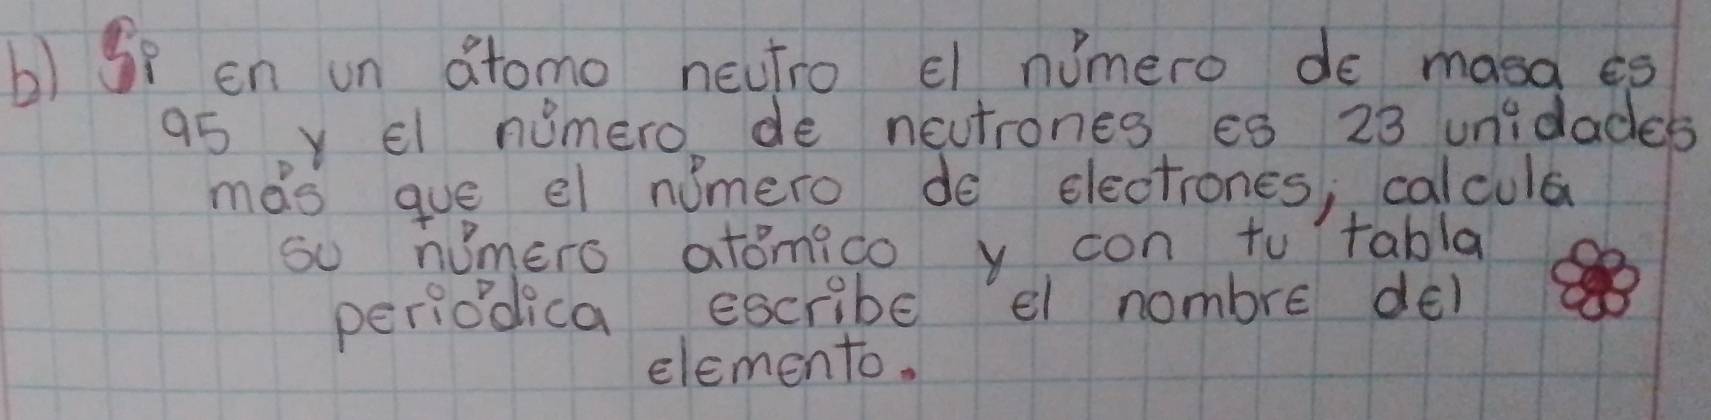 b) Si en un átomo neutro el número de masa es
95 y el número de neutrones es 23 unidades
más que el número de electrones, calcula
su número atómico y con tu tabla
periódica escribe el nombre del
elemento.